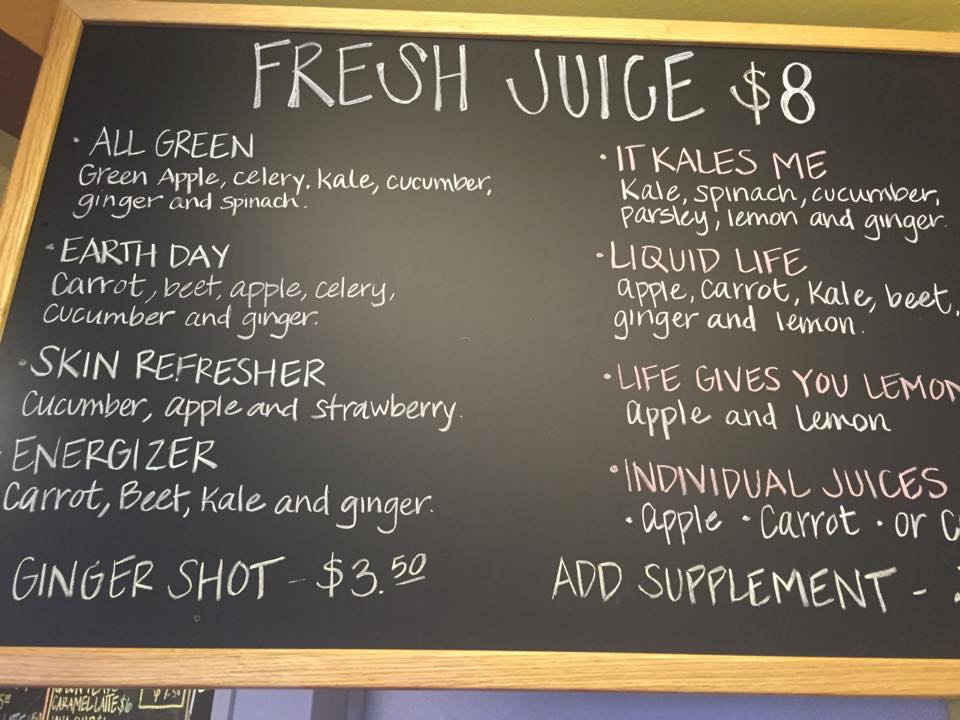 FRESH JUICE $8
· ALL GREEN
Green Apple, celery, kale, cucumber,
ginger and spinach.
· EARTH DAY
Carrot, beet, apple, celery,
cucumber and ginger.
· SKIN REFRESHER
Cucumber, apple and strawberry.
· ENERGIZER
Carrot, Beet, Kale and ginger.
GINGER SHOT - $3.50
· IT KALES ME
Kale, spinach, cucumber,
parsley, lemon and ginger.
· LIQUID LIFE
apple, carrot, Kale, beet,
ginger and lemon.
· LIFE GIVES YOU LEMON
apple and Lemon
· INDIVIDUAL JUICES
· apple · Carrot · or C
ADD SUPPLEMENT -
CARAMEL LATTE $6